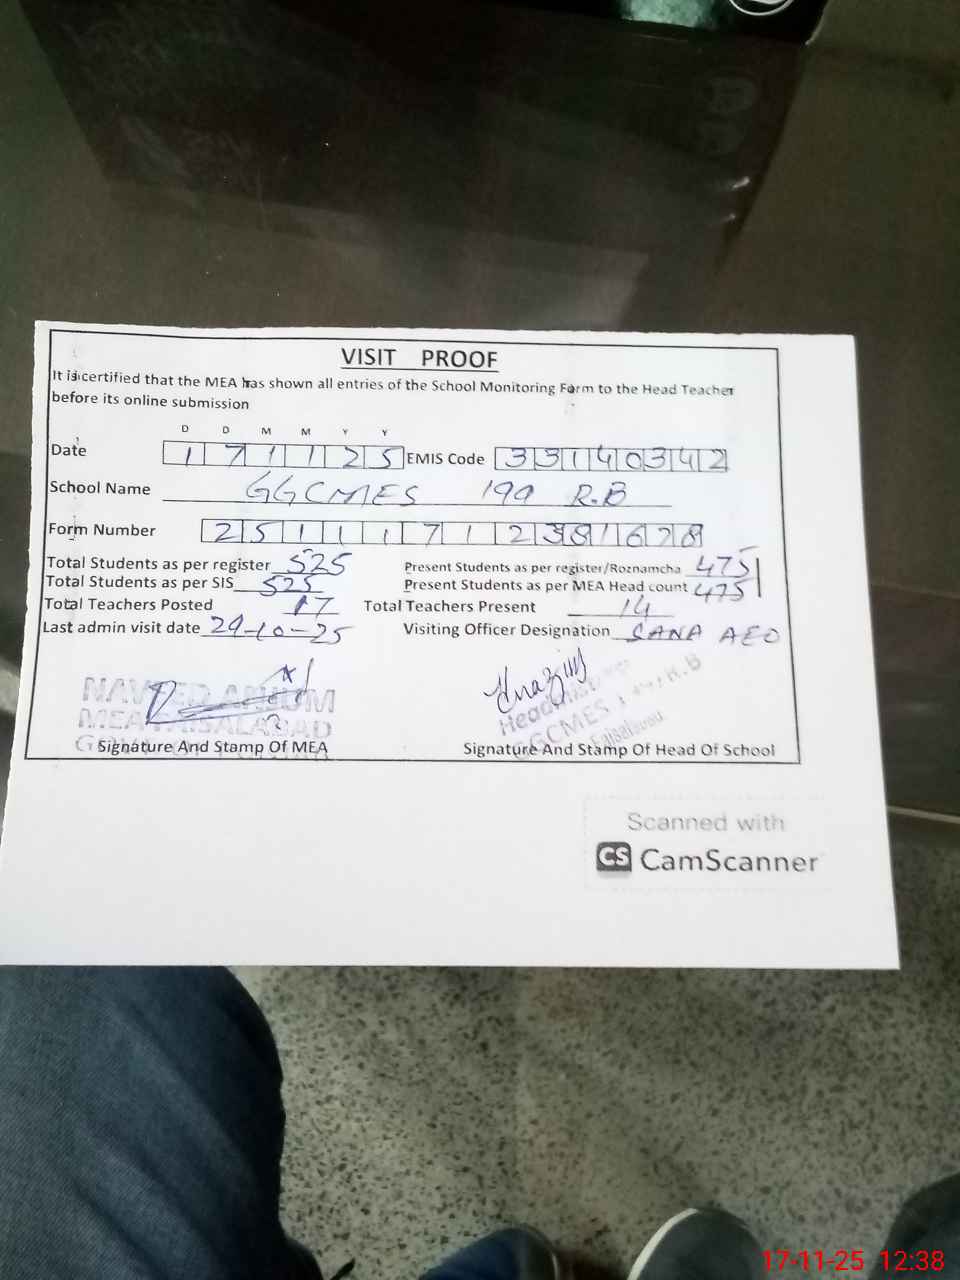 VISIT PROOF
It is certified that the MEA has shown all entries of the School Monitoring Form to the Head Teacher
before its online submission
D D M M Y Y
Date 1 7 1 1 2 5 EMIS Code 3 3 1 4 0 3 4 2
School Name GGCMES 199 R.B
Form Number 2 5 1 1 1 7 1 2 3 8 1 6 2 8
Total Students as per register 525 Present Students as per register/Roznamcha 475
Total Students as per SIS 525 Present Students as per MEA Head count 475
Total Teachers Posted 17 Total Teachers Present 14
Last admin visit date 29-10-25 Visiting Officer Designation SANA AEO
NAVEED ANJUM
MEA FAISALABAD
Headmistress
GGCMES R.B
Faisalabad
Signature And Stamp Of MEA Signature And Stamp Of Head Of School
Scanned with
CS CamScanner
17-11-25 12:38